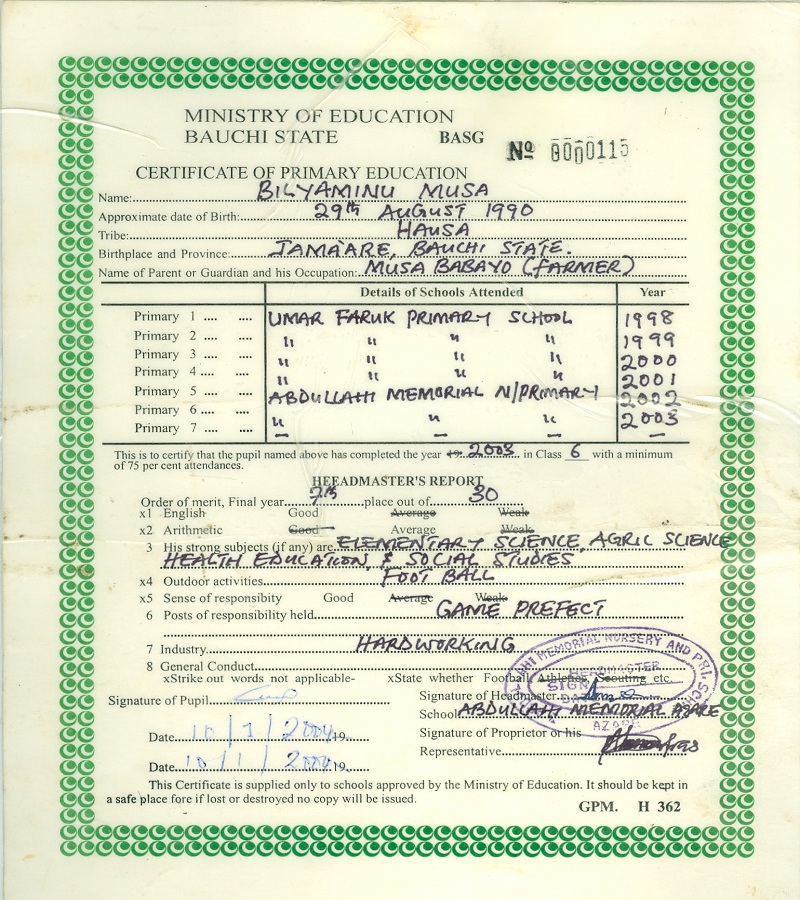 MINISTRY OF EDUCATION
BAUCHI STATE BASG № 0000115
CERTIFICATE OF PRIMARY EDUCATION
Name: BILYAMINU MUSA
Approximate date of Birth: 29th AUGUST 1990
Tribe: HAUSA
Birthplace and Province: JAMA'ARE, BAUCHI STATE.
Name of Parent or Guardian and his Occupation: MUSA BABAYO (FARMER)
Details of Schools Attended Year
Primary 1 .... .... UMAR FARUK PRIMARY SCHOOL 1998
Primary 2 .... .... " " " " 1999
Primary 3 .... .... " " " " 2000
Primary 4 .... .... " " " " 2001
Primary 5 .... .... ABDULLAHI MEMORIAL N/PRIMARY 2002
Primary 6 .... .... " " " 2003
Primary 7 .... .... — — — —
This is to certify that the pupil named above has completed the year 19 2003 in Class 6 with a minimum
of 75 per cent attendances.
HEEADMASTER'S REPORT
Order of merit, Final year 7th place out of 30
x1 English Good Average Weak
x2 Arithmetic Good Average Weak
3 His strong subjects (if any) are ELEMENTARY SCIENCE, AGRIC SCIENCE
HEALTH EDUCATION, & SOCIAL STUDIES
x4 Outdoor activities FOOT BALL
x5 Sense of responsibity Good Average Weak
6 Posts of responsibility held GAME PREFECT
7 Industry HARDWORKING
8 General Conduct
xStrike out words not applicable- xState whether Football, Athletics, Scouting etc.
Signature of Pupil
Signature of Headmaster
School ABDULLAHI MEMORIAL AZARE
Date 10/1/2004 19
Signature of Proprietor or his
Representative
Date 10/1/2004 19
MEMORIAL NURSERY AND PRI. SCH
HEADMASTER
SIGN
AZARE
This Certificate is supplied only to schools approved by the Ministry of Education. It should be kept in
a safe place fore if lost or destroyed no copy will be issued.
GPM. H 362